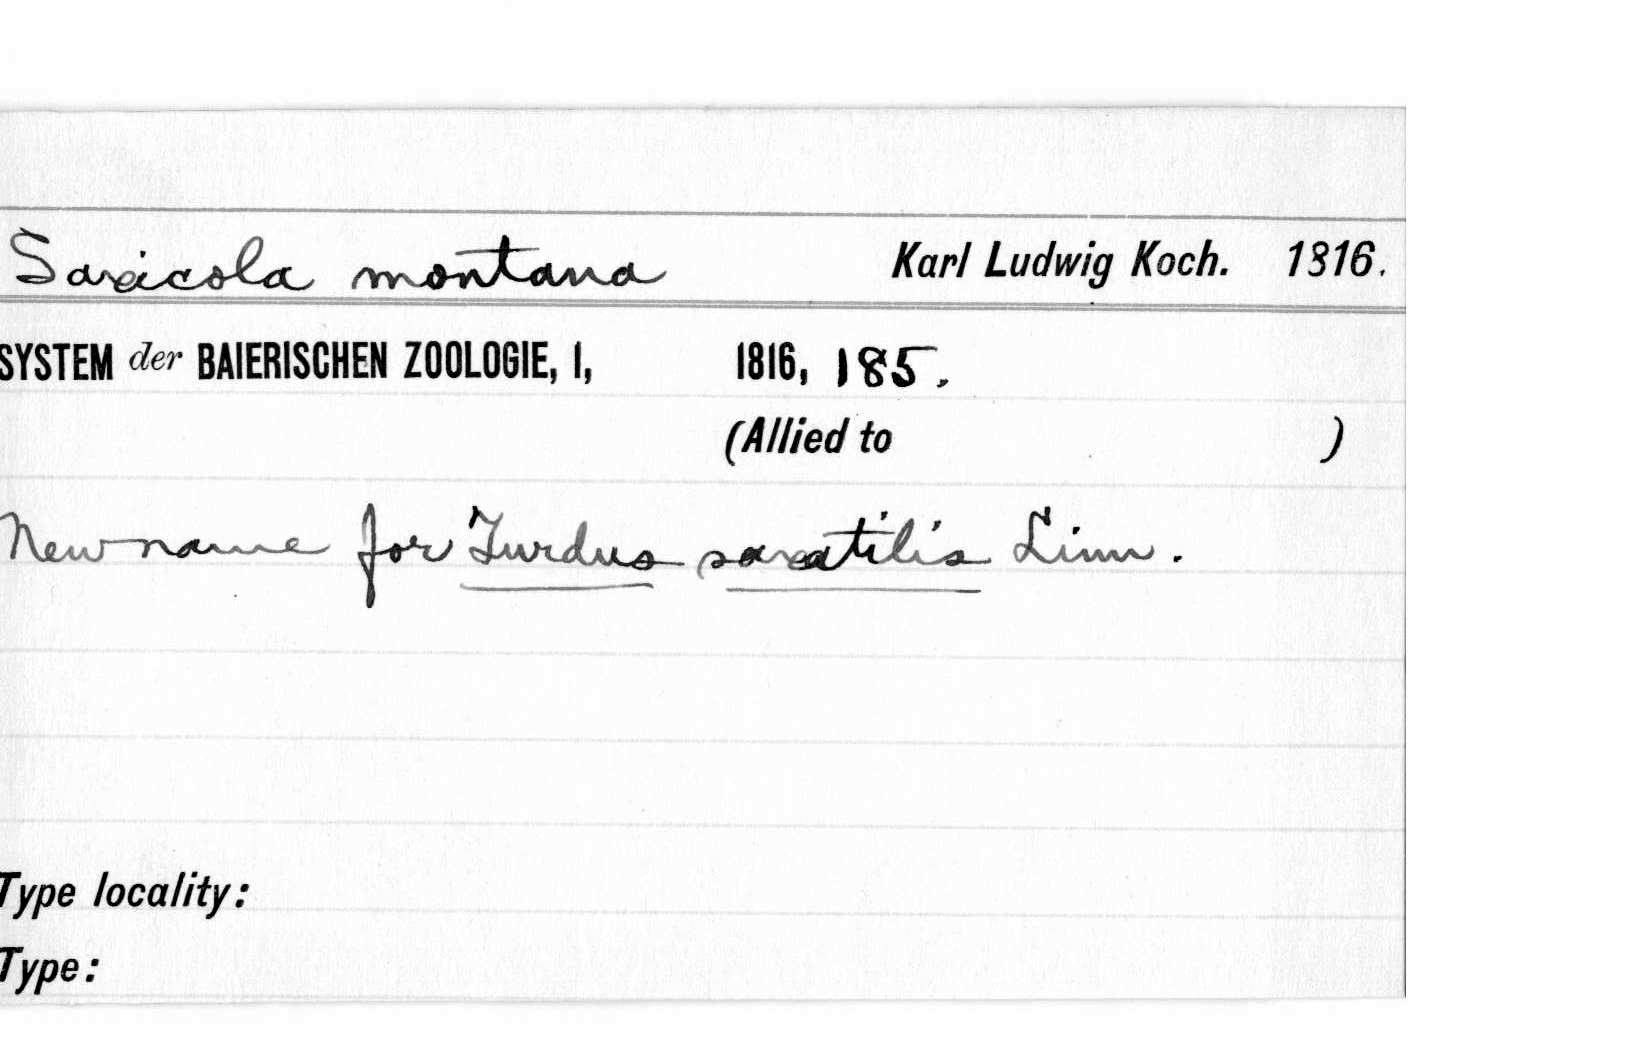 Saxicola montana Karl Ludwig Koch. 1816.
SYSTEM der BAIERISCHEN ZOOLOGIE, I, 1816, 185.
(Allied to )
New name for Turdus saxatilis Linn.
Type locality:
Type: